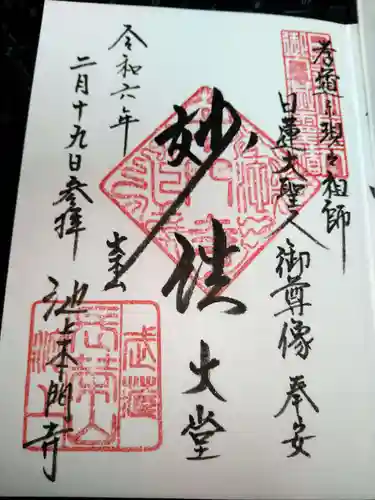 孝道示現之祖師
日蓮大聖人御尊像奉安
妙法
大堂
令和六年
二月十九日参拝
大本山
池上本門寺